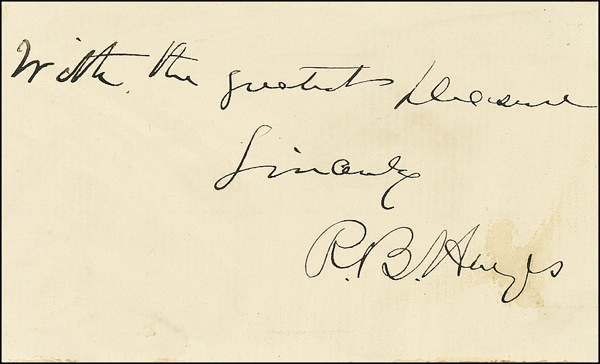 With the greatest pleasure
Sincerely
R.B. Hayes